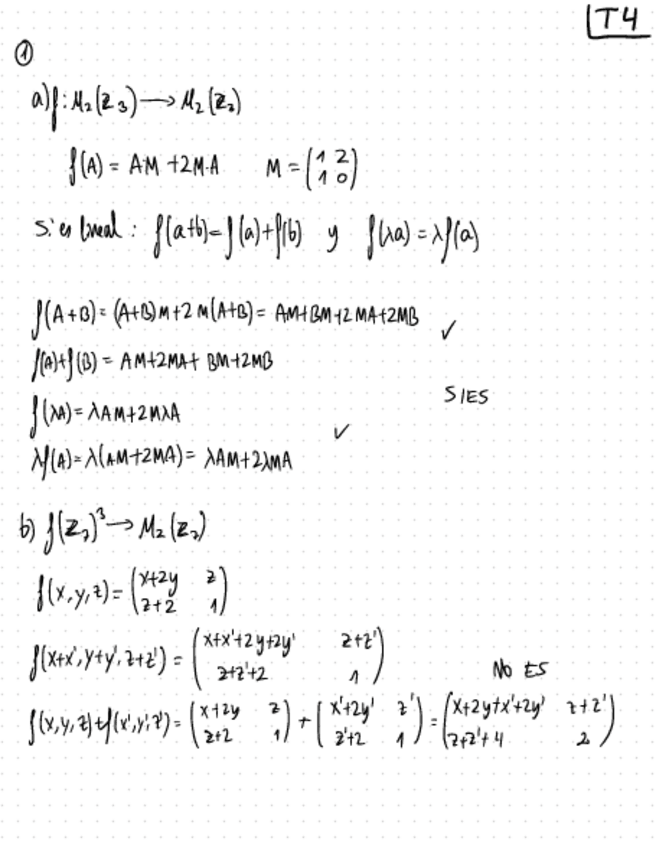 T4
①
a) f: M₂(ℤ₃) → M₂(ℤ₃)
f(A) = A·M + 2M·A M = (1 2; 1 0)
Si es lineal: f(a+b) = f(a) + f(b) y f(λa) = λf(a)
f(A+B) = (A+B)M + 2M(A+B) = AM+BM+2MA+2MB ✓
f(A)+f(B) = AM+2MA+BM+2MB
SI ES
f(λA) = λAM+2MλA ✓
λf(A) = λ(AM+2MA) = λAM+2λMA
b) f(ℤ₇)³ → M₂(ℤ₇)
f(x,y,z) = (x+2y z; z+2 1)
f(x+x',y+y',z+z') = (x+x'+2y+2y' z+z'; z+z'+2 1)
NO ES
f(x,y,z)+f(x',y',z') = (x+2y z; z+2 1) + (x'+2y' z'; z'+2 1) = (x+2y+x'+2y' z+z'; z+z'+4 2)